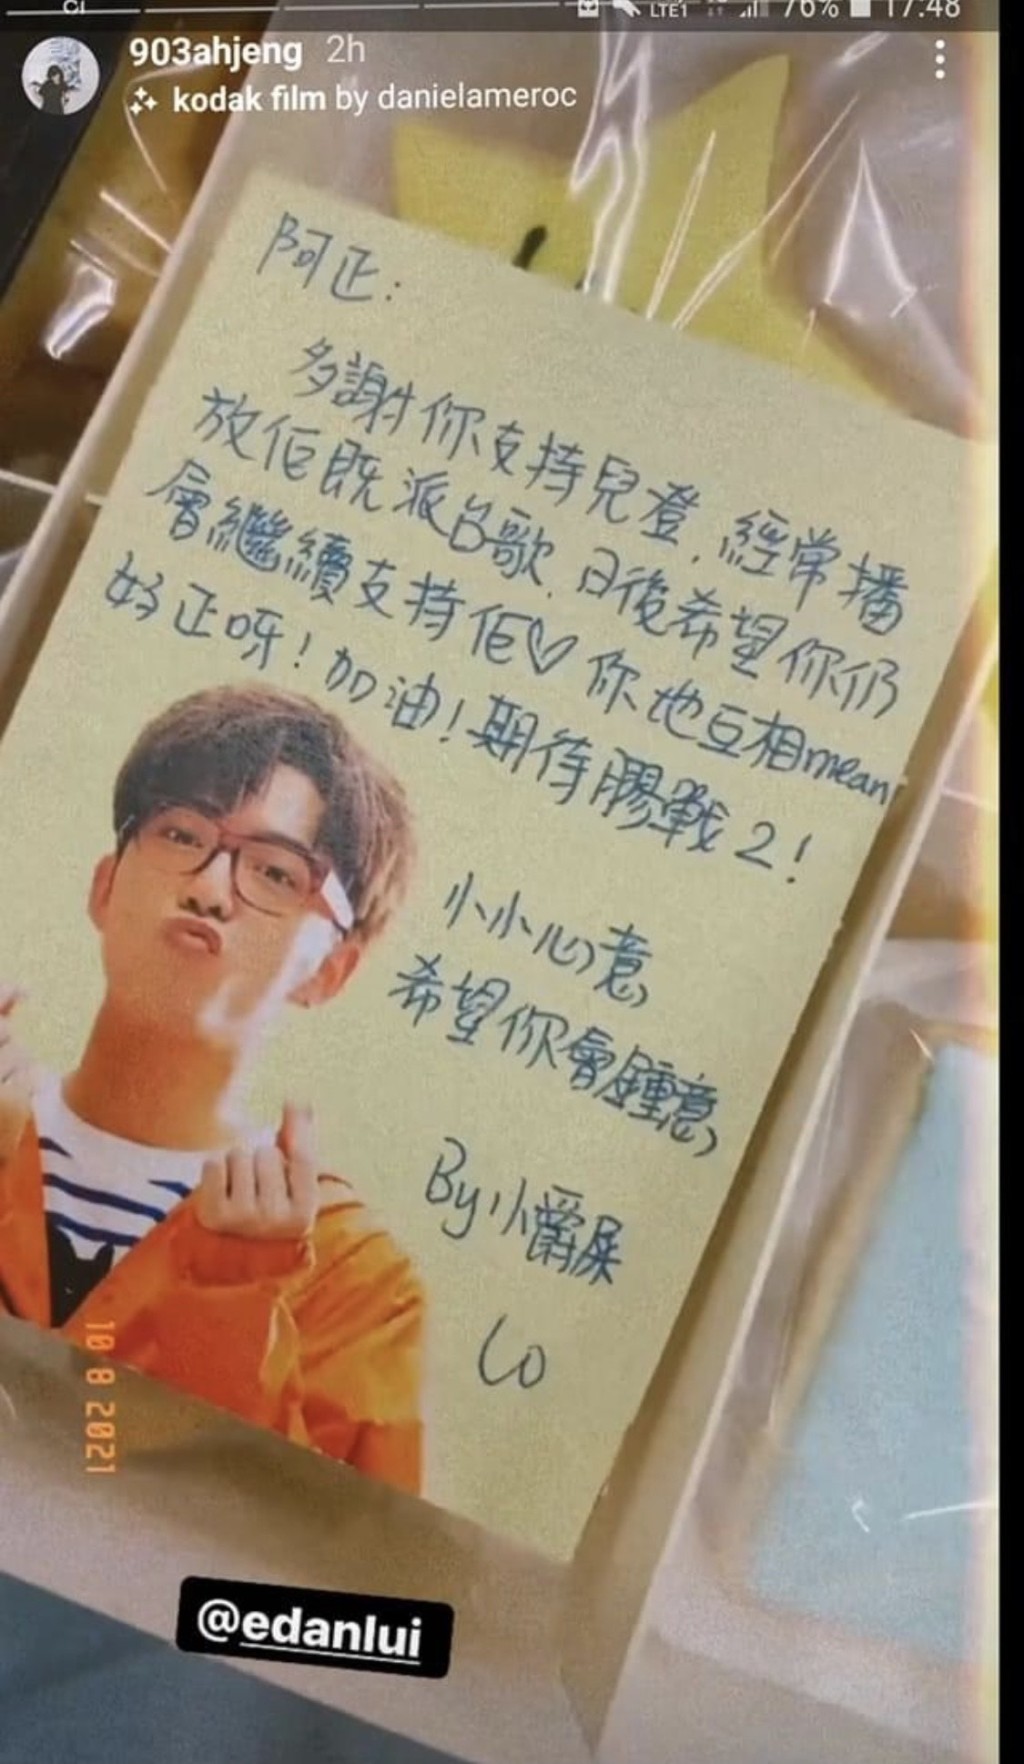 LTE1 76% 17:48
903ahjeng 2h
kodak film by danielameroc
阿正：
多謝你支持兒登，經常播
放佢既派台歌，日後希望你仍
會繼續支持佢♡你地互相mean
好正呀！加油！期待膠戰2！
小小心意
希望你會鍾意
By小爵屎
10 8 2021
@edanlui